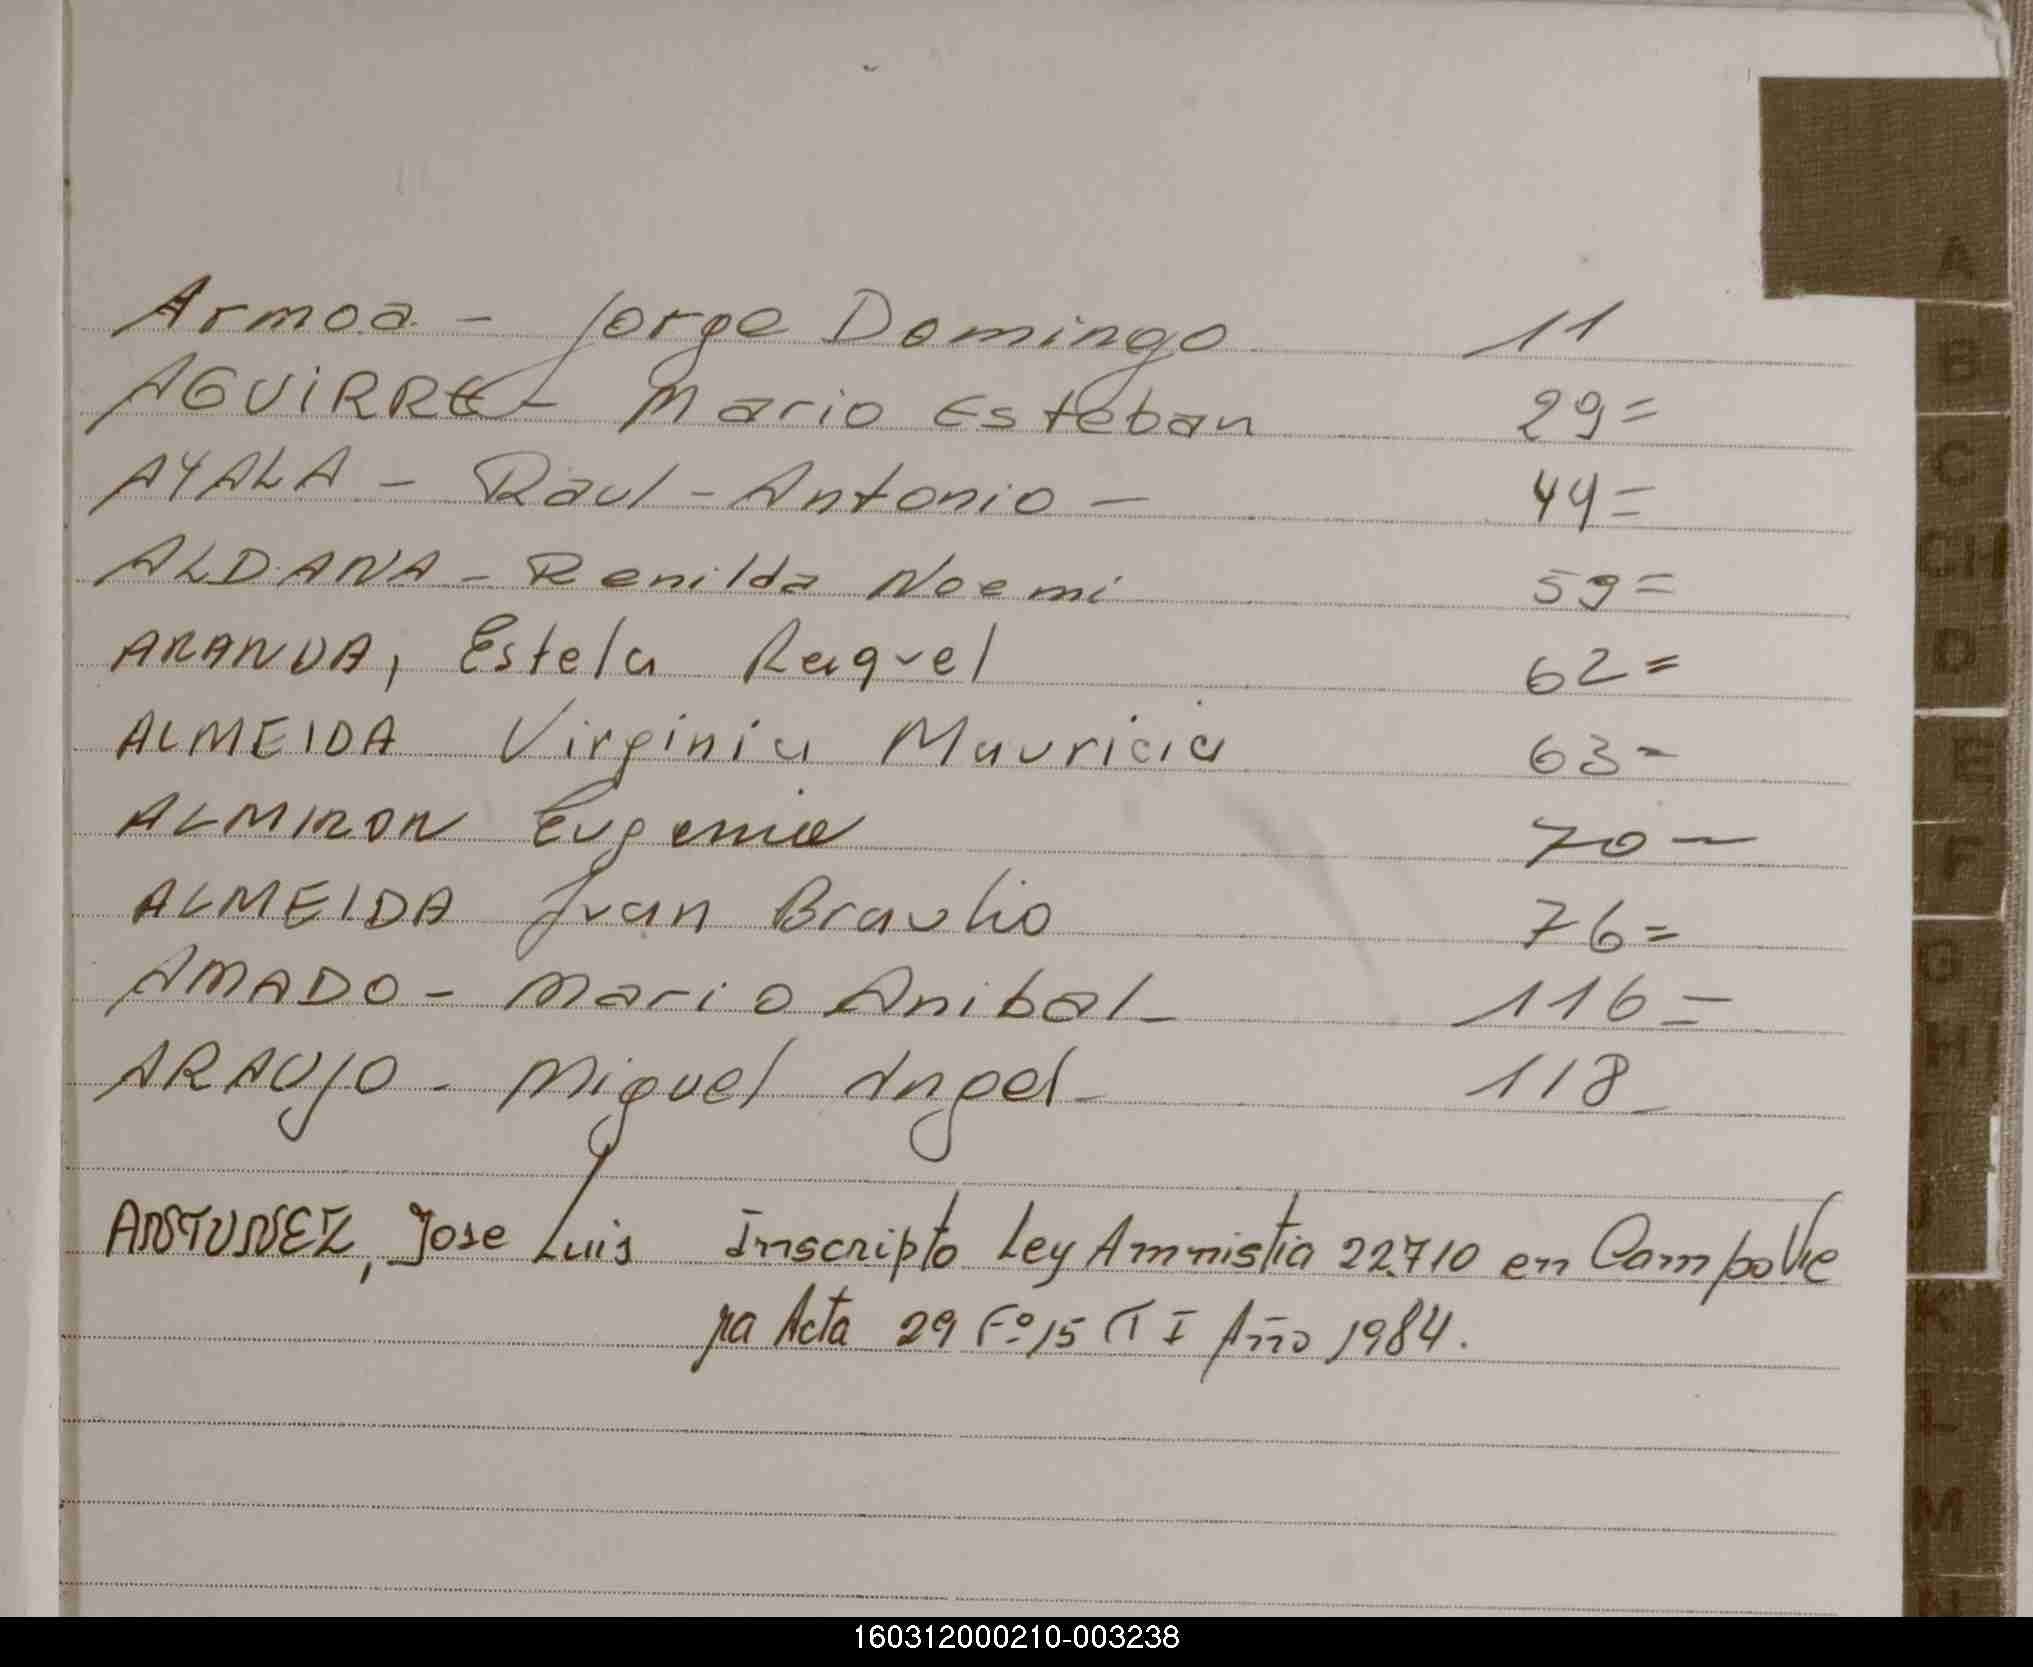 A
Armoa - Jorge Domingo 11
B
AGUIRRE - Mario Esteban 29=
C
AYALA - Raul - Antonio - 44=
CH
ALDANA - Renilda Noemi 59=
D
ARANDA, Estela Raquel 62=
ALMEIDA Virginia Mauricia 63-
E
ALMIRON Eugenia 70-
F
ALMEIDA Juan Braulio 76=
G
AMADO - Mario Anibal - 116=
H
ARAUJO - Miguel Angel - 118-
I
J
ANTUNEZ, Jose Luis Inscripto Ley Amnistia 22.710 en CampoVie
ra Acta 29 Fº 15 T I Año 1984.
K
L
M
N
160312000210-003238